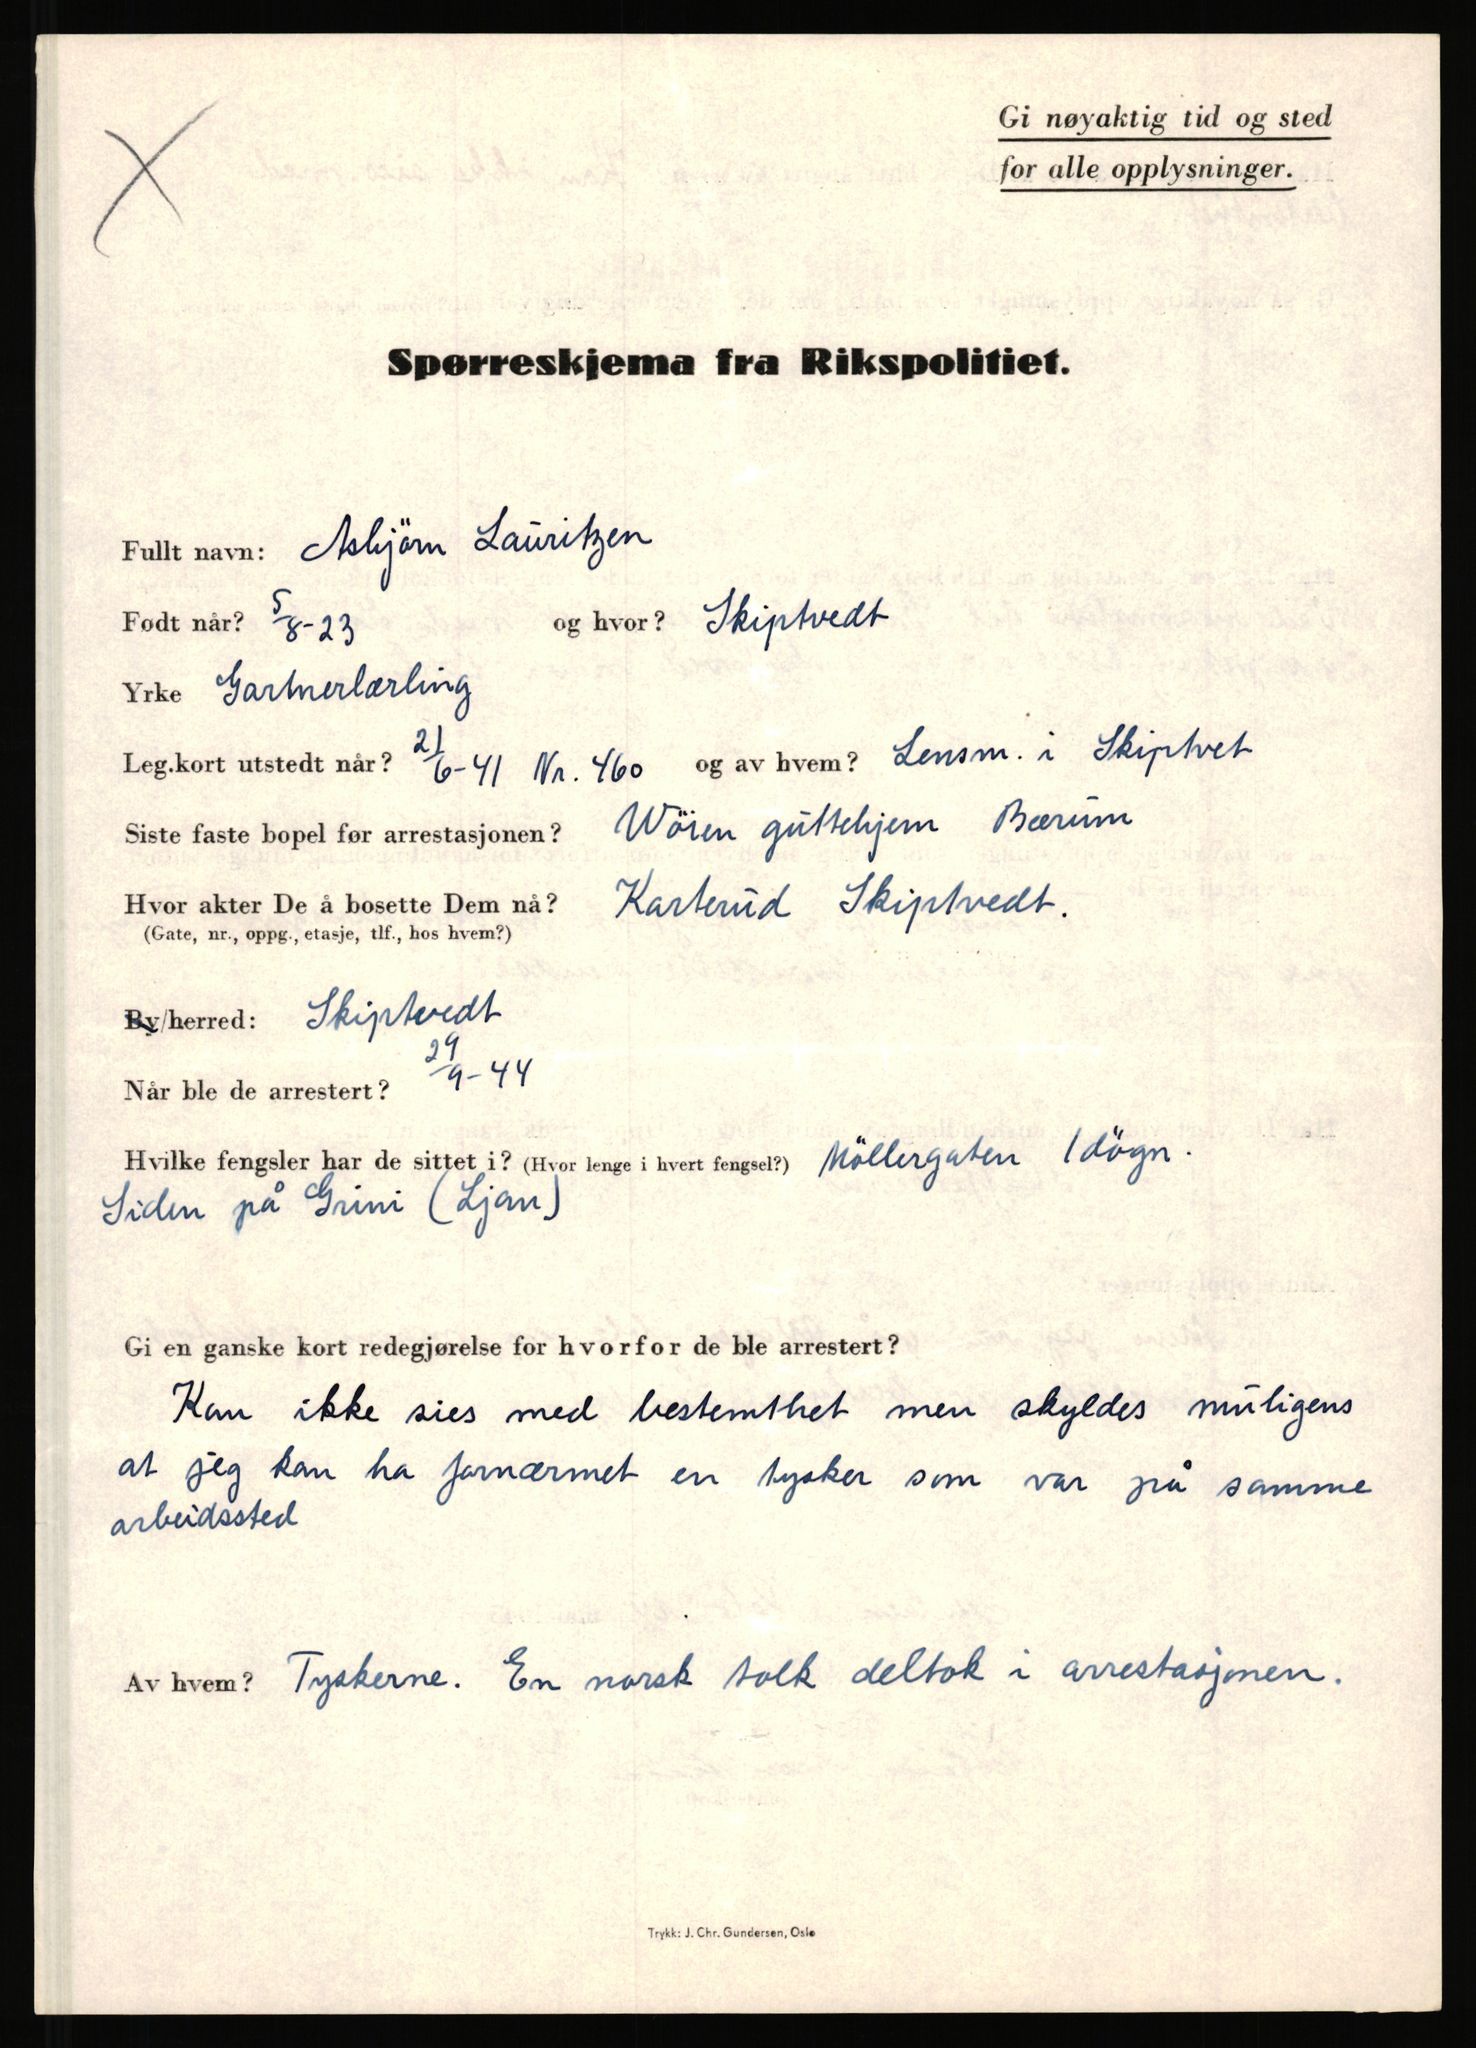 Gi nøyaktig tid og sted
for alle opplysninger.
Spørreskjema fra Rikspolitiet.
Fullt navn: Asbjörn Lauritzen
Født når? 5/8-23 og hvor? Skiptvedt
Yrke Gartnerlærling
Leg.kort utstedt når? 21/6-41 Nr. 460 og av hvem? Lensm. i Skiptvet
Siste faste bopel før arrestasjonen? Wöien guttehjem Bærum
Hvor akter De å bosette Dem nå? Karterud Skiptvedt.
(Gate, nr., oppg., etasje, tlf., hos hvem?)
By/herred: Skiptvedt
Når ble de arrestert? 29/9-44
Hvilke fengsler har de sittet i? (Hvor lenge i hvert fengsel?) Möllergaten 1 dögn.
Siden på Grini (Ljan)
Gi en ganske kort redegjørelse for hvorfor de ble arrestert?
Kan ikke sies med bestemthet men skyldes muligens
at jeg kan ha fornærmet en tysker som var på samme
arbeidssted
Av hvem? Tyskerne. En norsk tolk deltok i arrestasjonen.
Trykk: J. Chr. Gundersen, Oslo